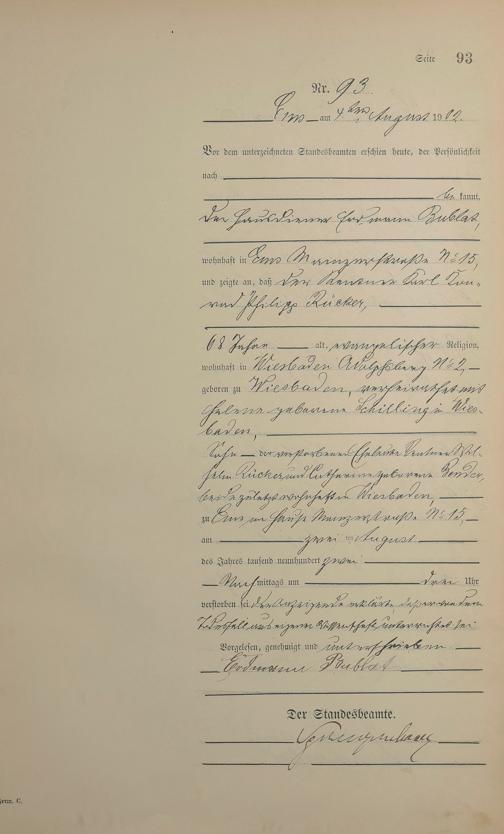 Seite 93
Nr. 93.
Ems am 4ten August 1902.
Vor dem unterzeichneten Standesbeamten erschien heute, der Persönlichkeit
nach
be kannt,
der Hausdiener Erdmann Bublat,
wohnhaft in Ems Mainzerstraße No 15,
und zeigte an, daß der Rentner Karl Kon-
rad Philipp Rücker,
68 Jahre alt, evangelischer Religion,
wohnhaft in Wiesbaden Adolphsberg No 2,
geboren zu Wiesbaden, verheirathet mit
Helene geborene Schilling in Wies-
baden,
Sohn der verstorbenen Eheleute Rentner Wil-
helm Rücker und Catharine geborene
beide zuletzt wohnhaft in Wiesbaden,
zu Ems im Hause Mainzerstraße No 15,
am zwei August
des Jahres tausend neunhundert zwei
Nach mittags um drei Uhr
verstorben sei. Der Anzeigende erklärte daß er von dem
Todesfall aus eigener Wissenschaft unterrichtet sei
Vorgelesen, genehmigt und unterschrieben
Erdmann Bublat
Der Standesbeamte.